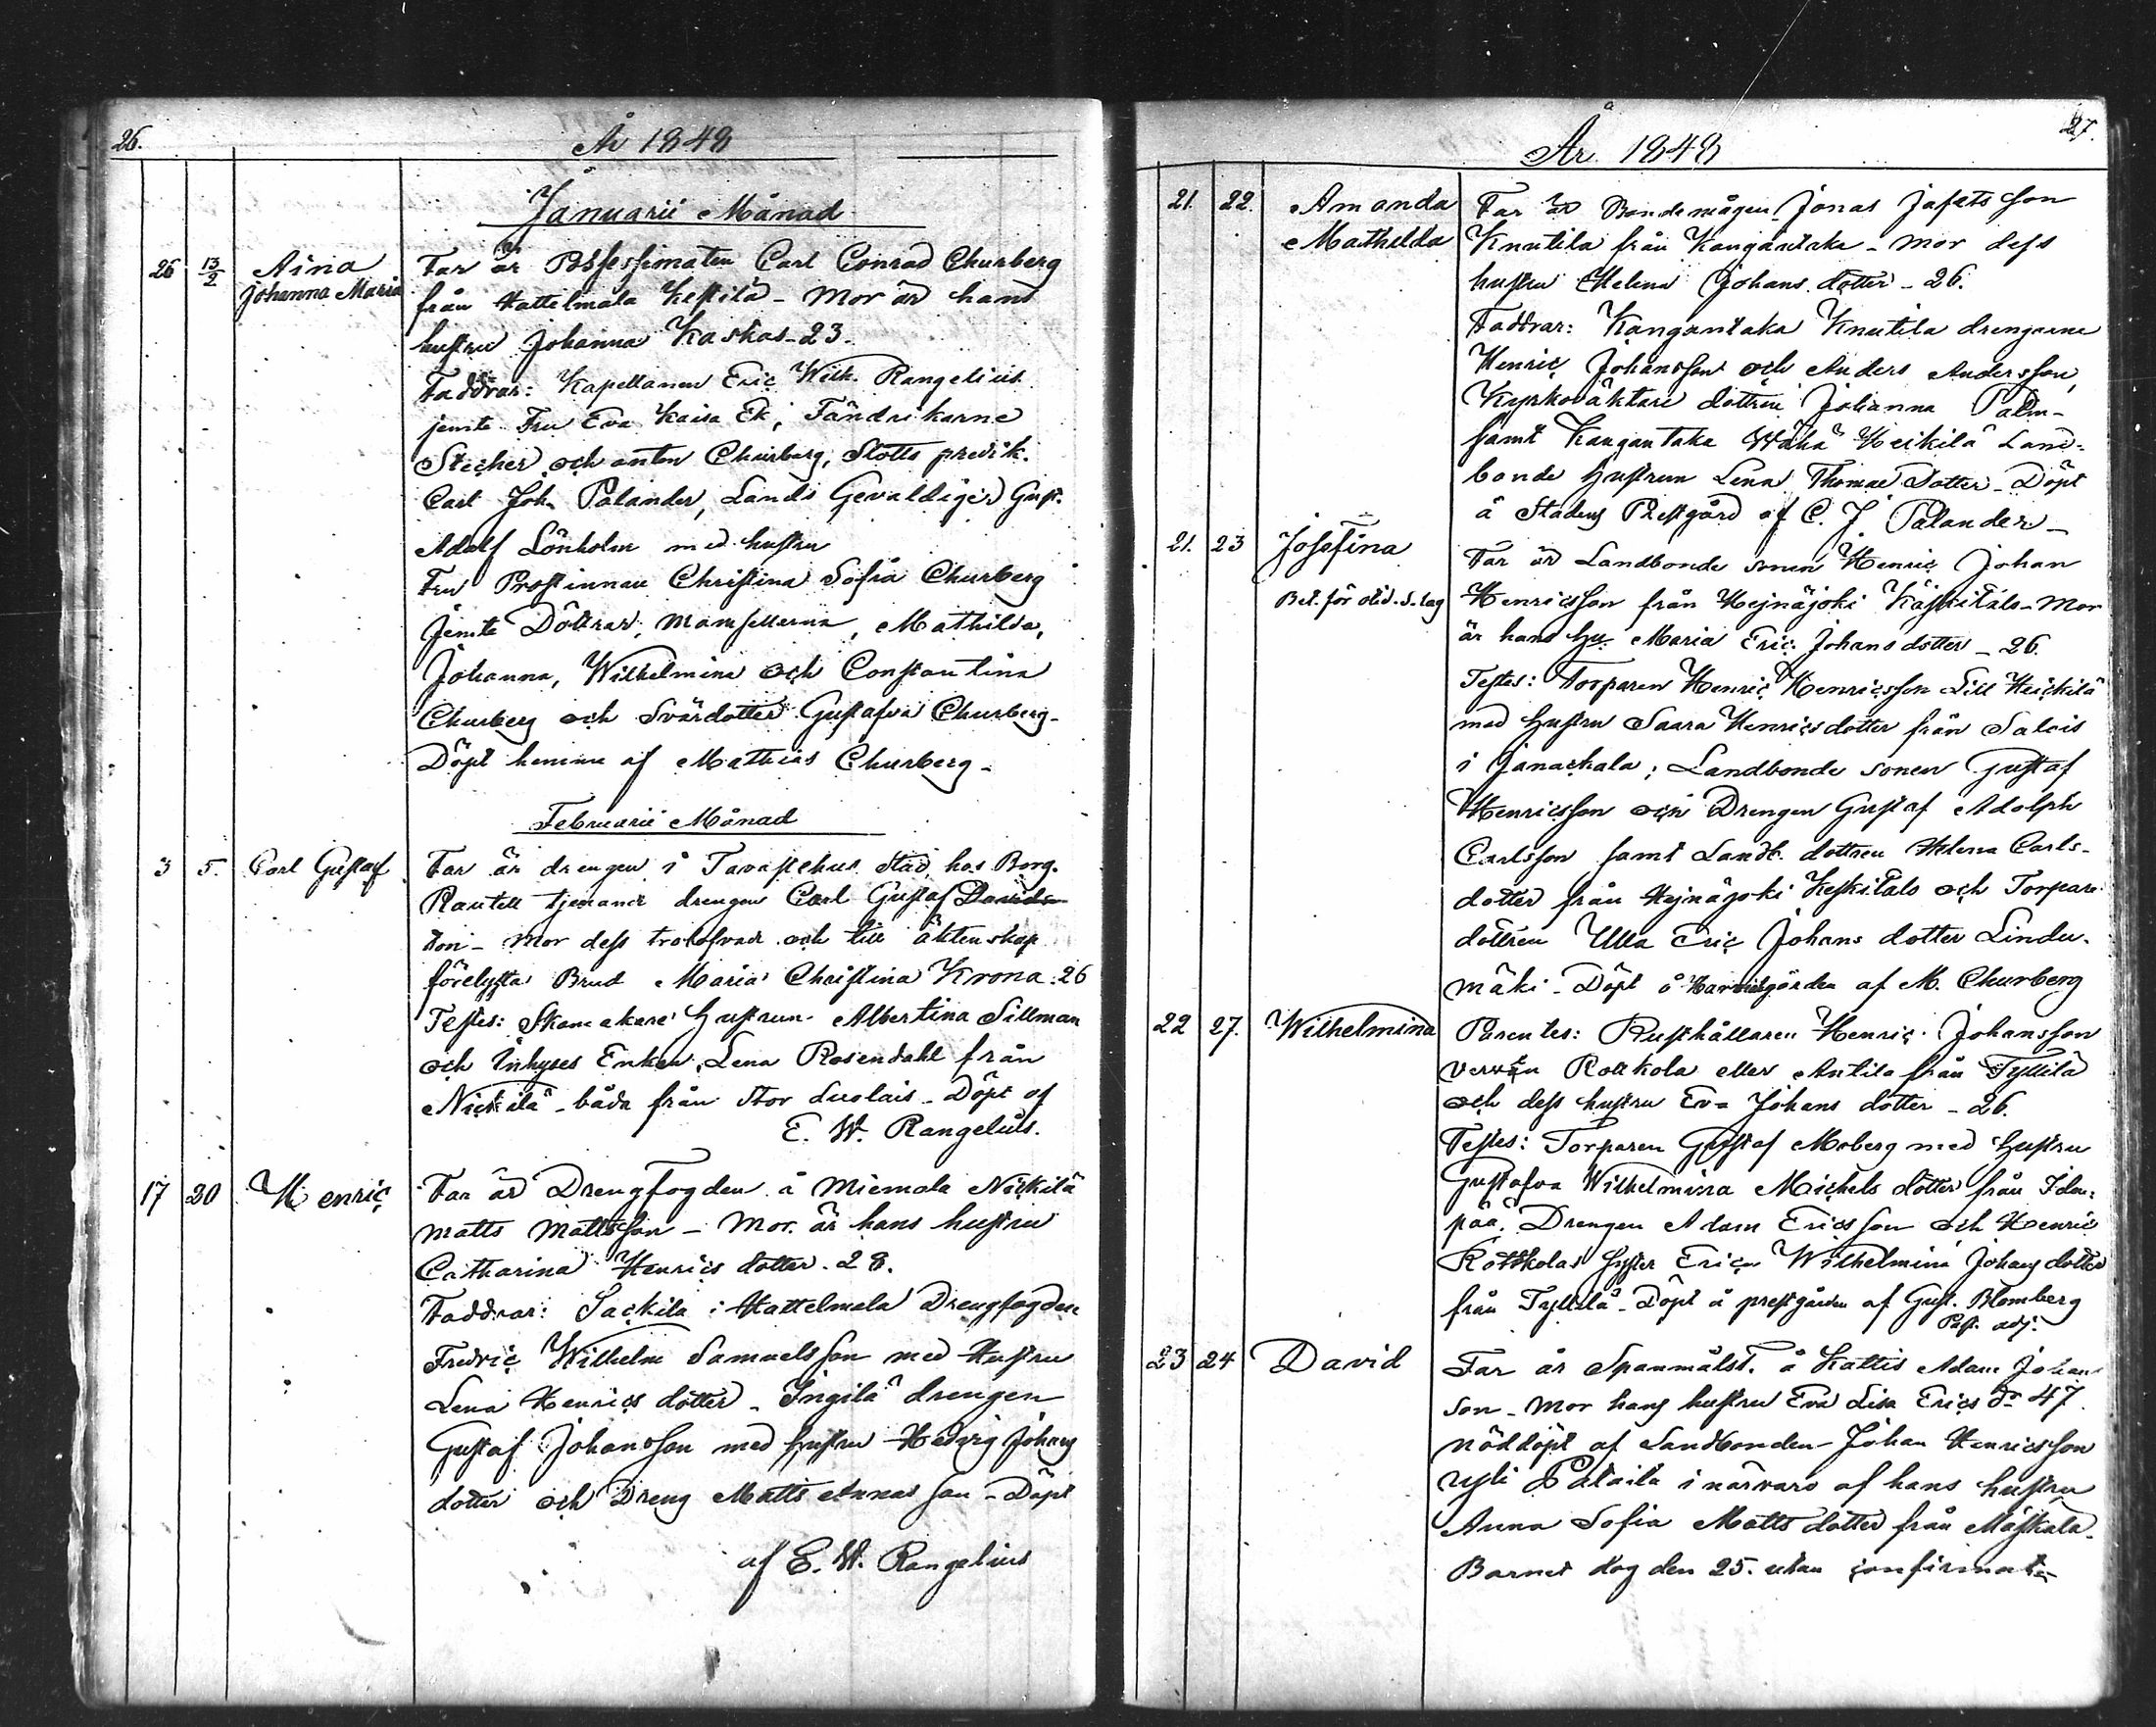 26.
År 1848
Januarii Månad
26 13/2 Aina Johanna Maria
Far är Possessionaten Carl Conrad Churberg
från Hattelmala Keskilä - Mor är hans
hustru Johanna Kaskas - 23.
Faddrar: Kapellanen Eric Wilh. Rangelius
jemte Fru Eva Kaisa Ek, Fändrikarne
Stecher och anton Churberg, Slotts predik.
Carl Joh. Palander, Lands Gevaldiger Gust.
Adolf Lönholm med hustru
Fru Prostinnan Christina Sofia Churberg
jemte Döttrar, Mamsellerna, Mathilda,
Johanna, Wilhelmina och Constantina
Churberg och Svärdotter Gustafva Churberg -
Döpt hemma af Mathias Churberg -
Februarii Månad
3 5. Carl Gustaf
Far är drengen i Tavastehus Stad, hos Borg.
Rautell tjenande drengen Carl Gustaf Davids
son - Mor dess trolofvade och till äktenskap
förelysta Brud Maria Christina Krona. 26
Testes: Skomakare Hustrun Albertina Sillman
och Inhyses Enkan Lena Rosendahl från
Nickilä - båda från Stor Luolais - Döpt af
E. W. Rangelius.
17 20 Henric
Far är Drengfogden å Miemala Nickilä
Matts Mattsson - Mor är hans hustru
Catharina Henrics dotter - 28.
Faddrar: Sackila i Hattelmala Drengfogden
Fredric Wilhelm Samuelsson med Hustru
Lena Henrics dotter - Ingilä drengen
Gustaf Johansson med hustru Hedvig Johans
dotter och Dreng Matts son - Döpt
af E. W. Rangelius
27.
År 1848
21. 22. Amanda Mathilda
Far är Bondemågen Jonas Jafets son
Knutila från Kangantaka - Mor dess
hustru Helena Johans dotter - 26.
Faddrar: Kangantaka Knutila drengarne
Henric Johansson och Anders Andersson,
Kyrkoväktare dottren Johanna Palm -
samt Kangantaka Wähä Heikilä Land-
bonde Hustrun Lena Thomae Dotter - Döpt
å Stadens Prestgård af C. J. Palander -
21. 23 Josefina
Far är Landbonde sonen Henric Johan
Henricsson från Hejnäjoki Käskitalo - Mor
är hans Hu Maria Eric Johans dotter - 26.
Testes: Torparen Henric Henricsson Lill Heickilä
med Hustru Saara Henricsdotter från Salois
i Janackala; Landbonde sonen Gustaf
Henricsson och Drengen Gustaf Adolph
Carlsson samt Landb. dottren Helena Carls-
dotter från Hejnäjoki Keskitalo och Torpare
dottren Ulla Eric Johans dotter Lindu-
mäki - Döpt å af M. Churberg
22 27. Wilhelmina
Parentes: Rusthållaren Henric Johansson
Rottkola eller Antila från Tyllilä
och dess hustru Eva Johans dotter - 26.
Testes: Torparen Gustaf Moberg med Hustru
Gustafva Wilhelmina Michels dotter från Idän-
pää. Drengen Adam Ericsson och Henric
Rottkolas Syster Erica Wilhelmina Johans dotter
från Tyllilä - Döpt å prestgården af Gust. Blomberg
Past. adj.
23 24 David
Far är Spanmålst. å Kattis Adam Johan
son - Mor hans hustru Eva Lisa Erics dr 47.
nöddöpt af Landbonden Johan Henricsson
i närvaro af hans hustru
Anna Sofia Matts dotter från Mäskala -
Barnet dog den 25. utan confirmation